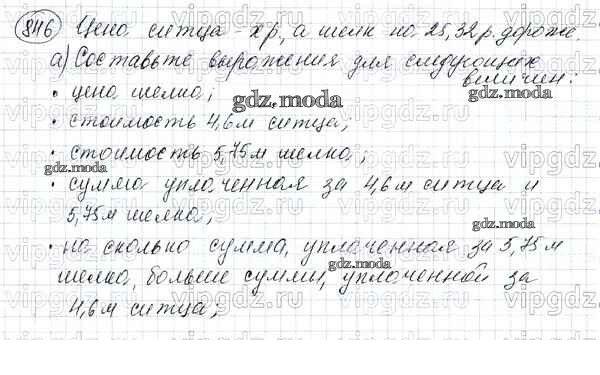 846 Цена ситца - х р, а шелк на 25,32 р. дороже.
а) Составьте выражения для следующих
величин:
• цена шелка;
• стоимость 4,6 м ситца;
• стоимость 5,75 м шелка;
• сумма уплаченная за 4,6 м ситца и
5,75 м шелка;
• на сколько сумма, уплаченная за 5,75 м
шелка, больше суммы, уплаченной за
4,6 м ситца;
gdz.moda
gdz.moda
gdz.moda
gdz.moda
gdz.moda
vipgdz.ru